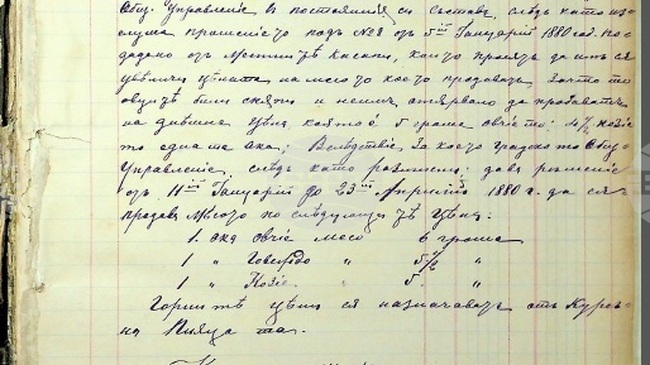 Общ. Управление въ постоянния си съставъ, следъ като из-
слуша прошението подъ №8 отъ 5ий Януарий 1880 год. по-
дадено отъ местнитѣ касапи, които просятъ да имъ ся
увѣличи цѣната на месото което продаватъ, защо то
овцитѣ били скѫпи и немъ отървало да продаватъ
на днешна цѣна, която е 5 гроша овче то; 4½ козие
то едната ока; Вследствие за което градско то Общ.
Управление, следъ като разгледа; дава решение
отъ 11ий Януарий до 23ий Априлий 1880 г. да ся
продава месото по следующитѣ цѣни:
1. ока овчие месо 6 гроша
1 " Говеждо " 5½ "
1 " Козие. " 5. "
Горнитѣ цѣни ся назначаватъ отъ
на Пияца та.